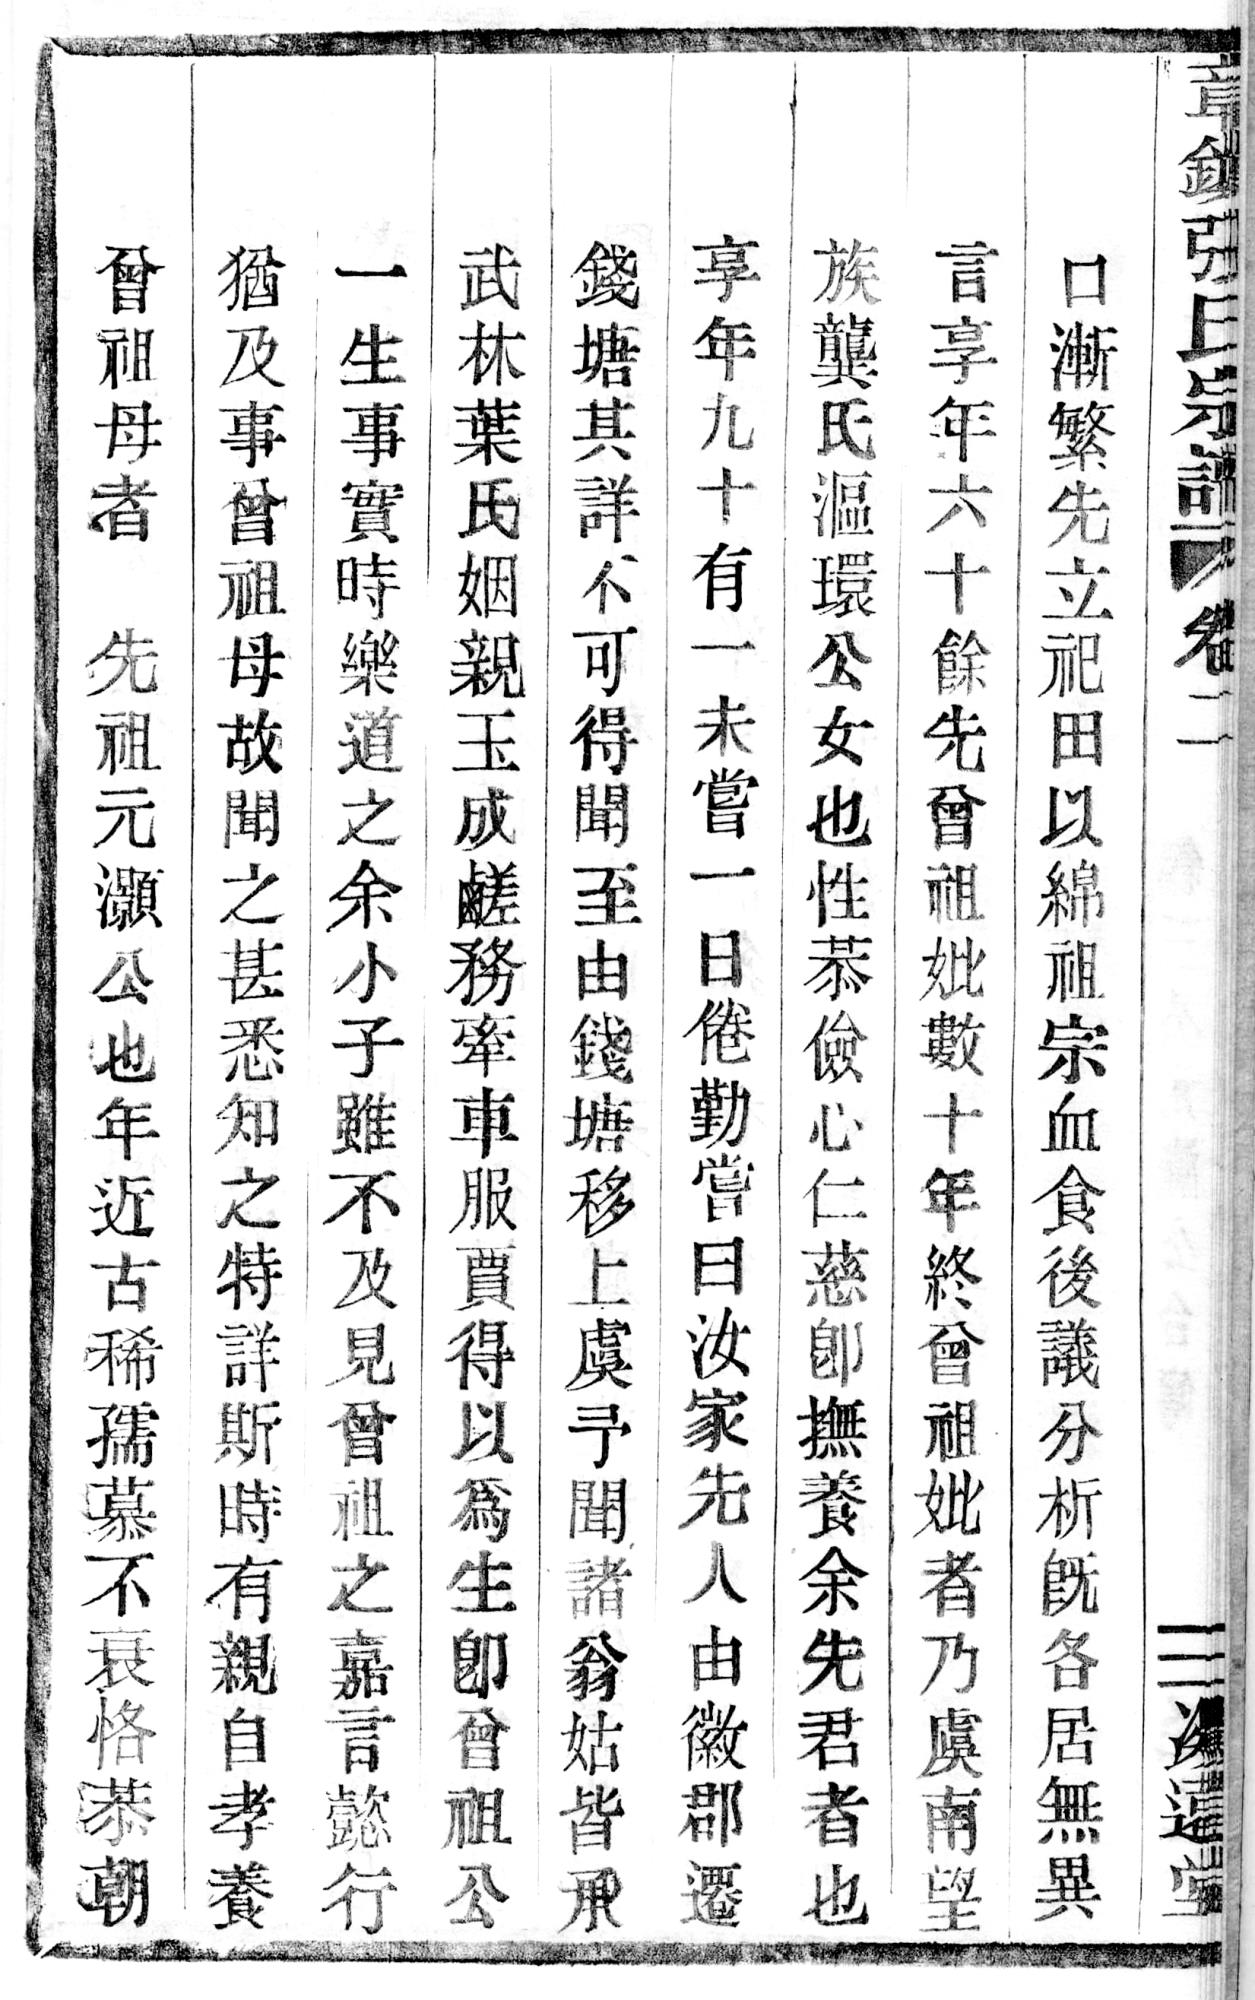 章鎮張氏宗譜 卷二 三 遠堂
口漸繁先立祀田以綿祖宗血食後議分析旣各居無異
言享年六十餘先曾祖妣數十年終曾祖妣者乃虞南望
族龔氏漚環公女也性恭儉心仁慈卽撫養余先君者也
享年九十有一未嘗一日倦勤嘗曰汝家先人由徽郡遷
錢塘其詳不可得聞至由錢塘移上虞予聞諸翁姑皆承
武林葉氏姻親玉成鹺務牽車服賈得以爲生卽曾祖公
一生事實時樂道之余小子雖不及見曾祖之嘉言懿行
猶及事曾祖母故聞之甚悉知之特詳斯時有親自孝養
曾祖母者 先祖元灝公也年近古稀孺慕不衰恪恭朝